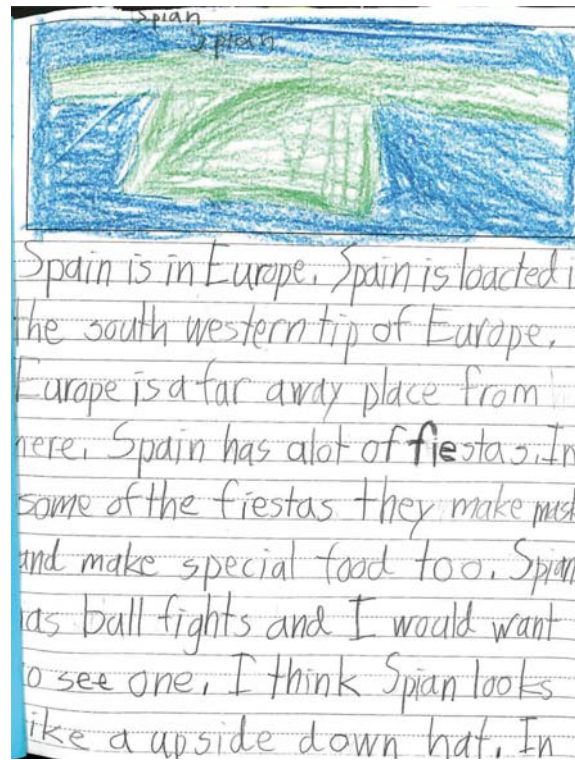 Spian
Spian
Spain is in Europe. Spain is loacted i
the south western tip of Europe.
Europe is a far away place from
here. Spain has alot of fiestas. In
some of the fiestas they make mask
and make special food too. Spian
has bull fights and I would want
to see one. I think Spian looks
like a upside down hat. In